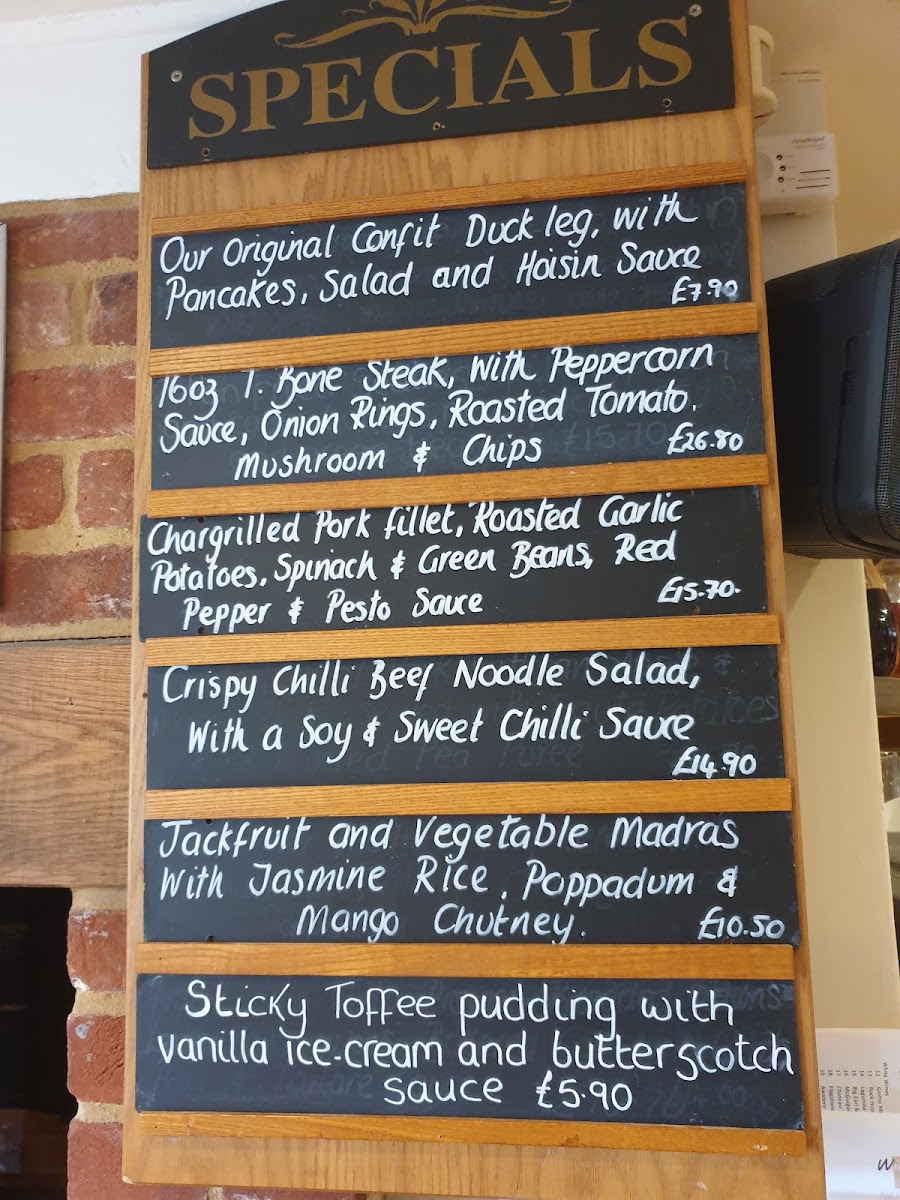 SPECIALS
Our Original Confit Duck leg, with
Pancakes, Salad and Hoisin Sauce
£7.90
16oz T. Bone Steak, With Peppercorn
Sauce, Onion Rings, Roasted Tomato.
Mushroom & Chips £26.80
Chargrilled Pork fillet, Roasted Garlic
Potatoes. Spinach & Green Beans, Red
Pepper & Pesto Sauce £15.70.
Crispy Chilli Beef Noodle Salad,
With a Soy & Sweet Chilli Sauce
£14.90
Jackfruit and Vegetable Madras
With Jasmine Rice, Poppadum &
Mango Chutney. £10.50
Sticky Toffee pudding with
vanilla ice-cream and butterscotch
sauce £5.90
White Wines